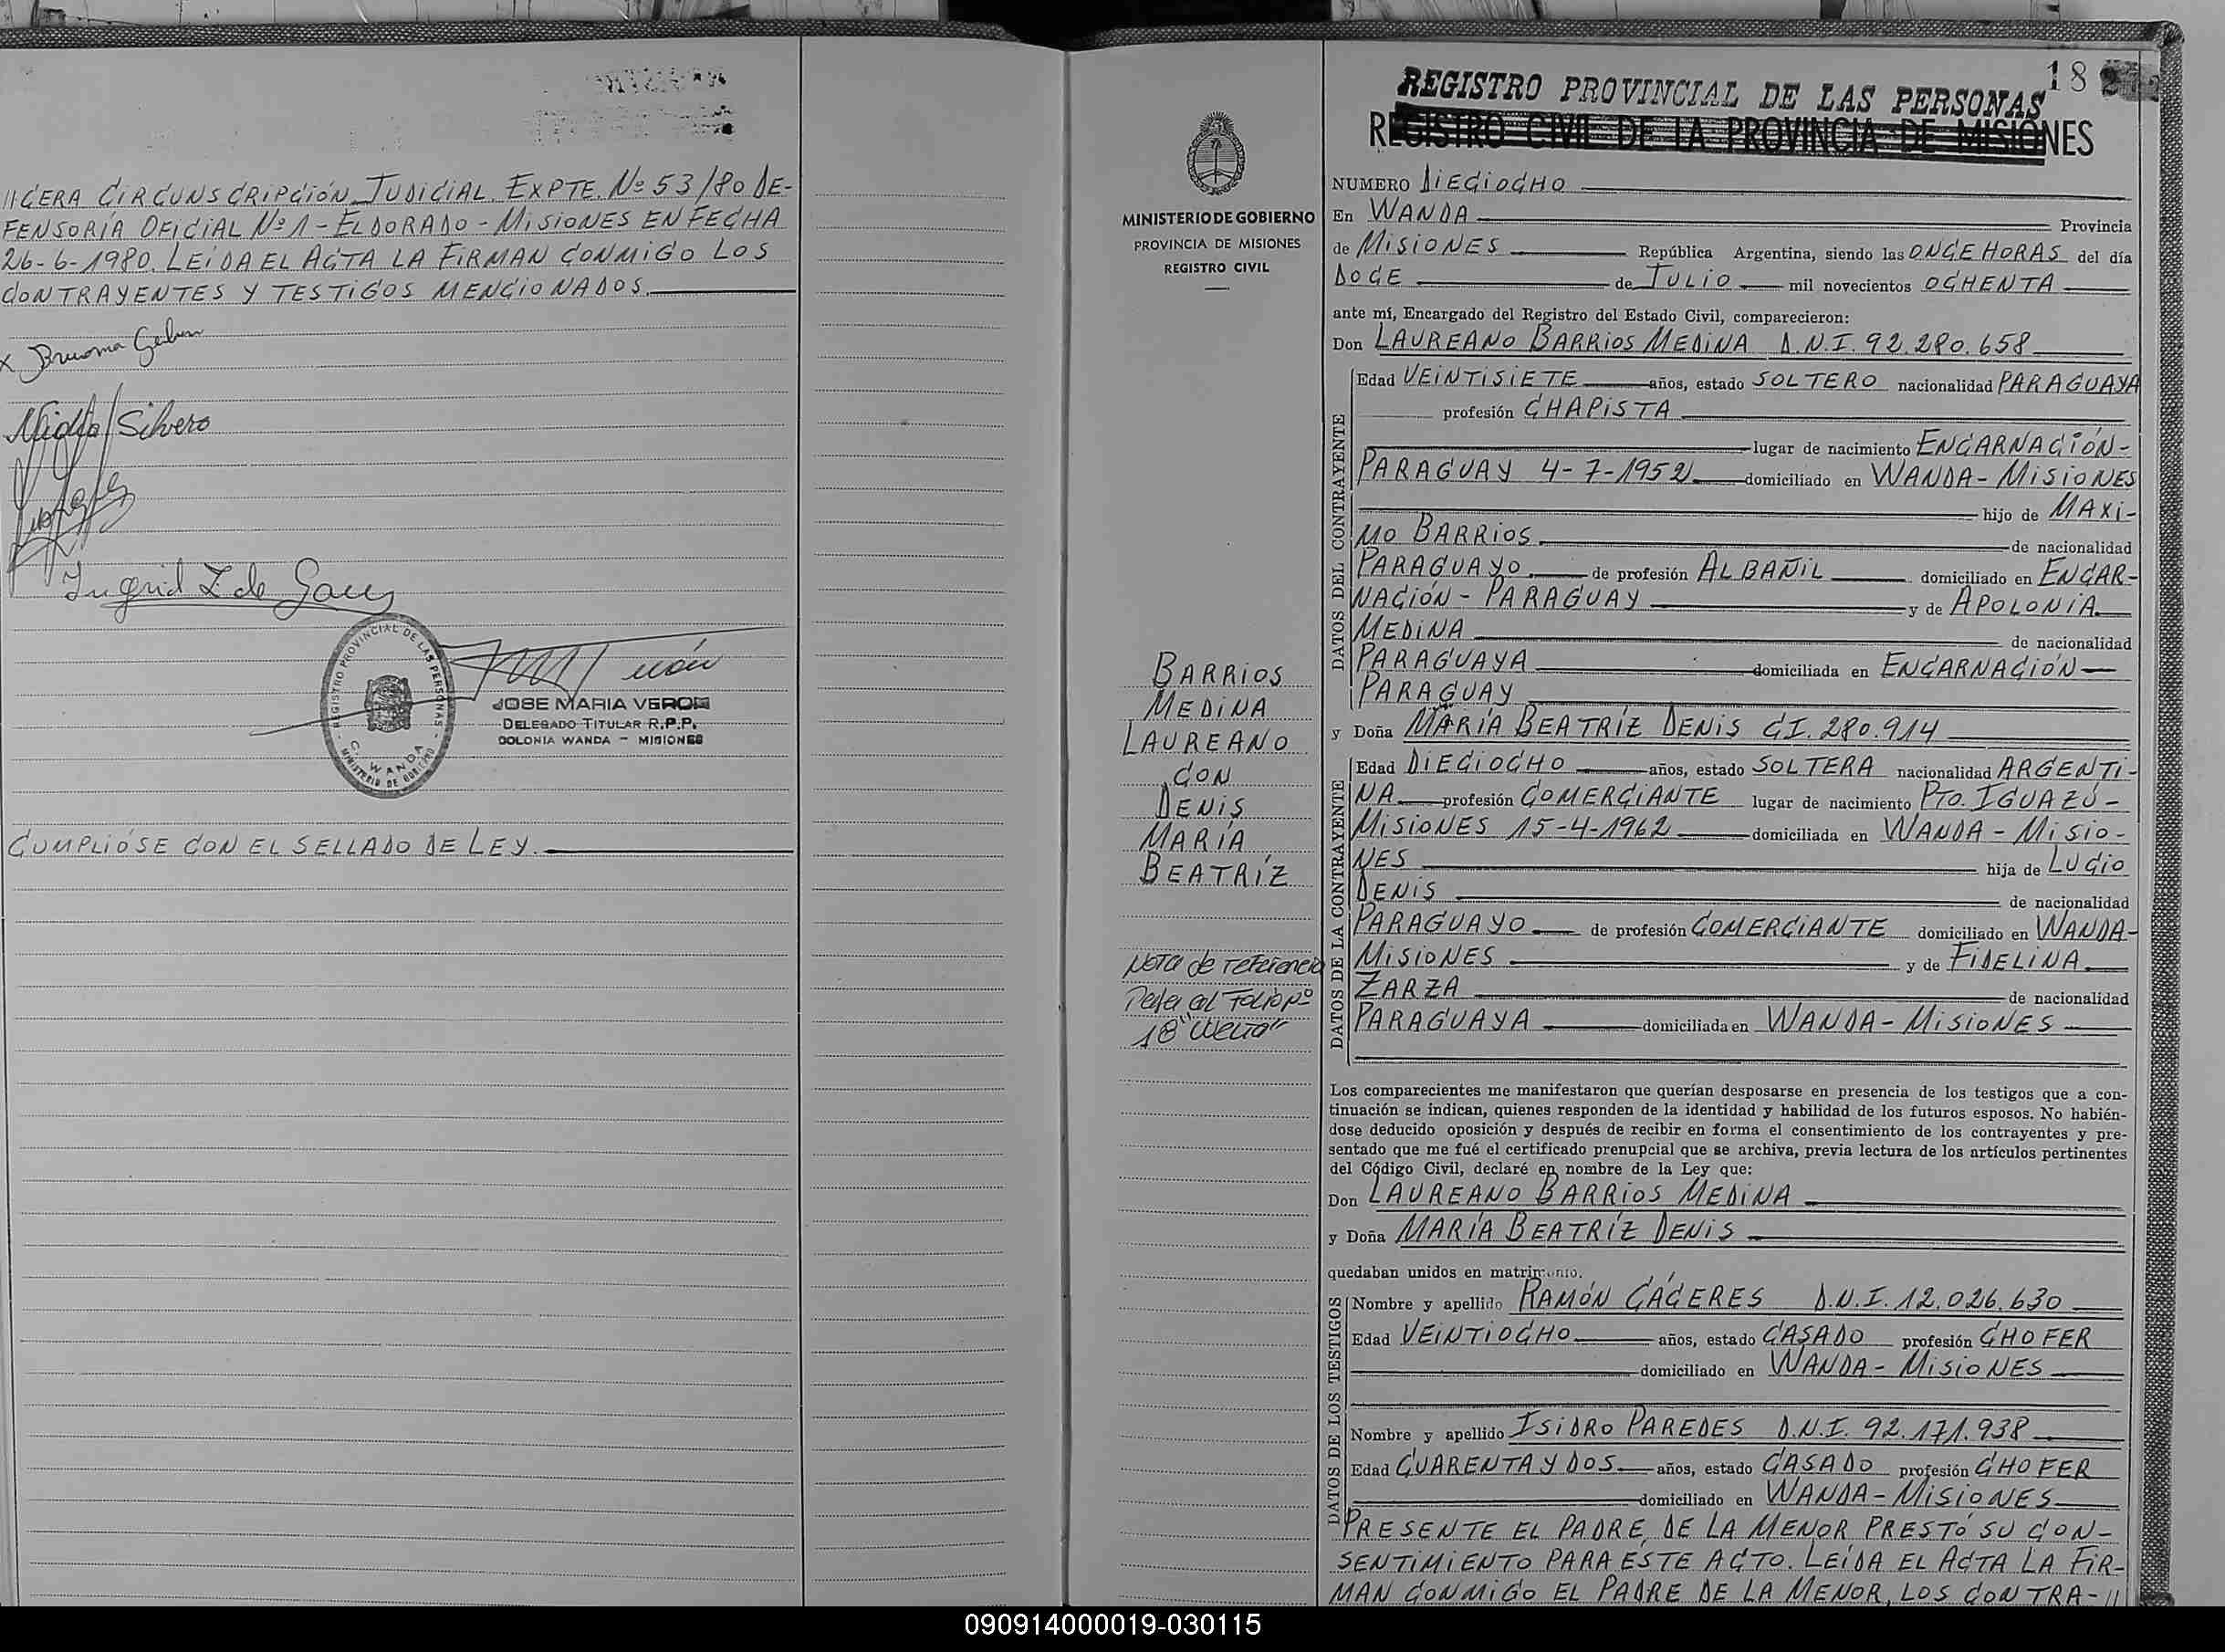 //CERA CIRCUNSCRIPCIÓN JUDICIAL. EXPTE. Nº 53/80 DE-
FENSORÍA OFICIAL Nº 1 - ELDORADO - MISIONES EN FECHA
26-6-1980. LEÍDA EL ACTA LA FIRMAN CONMIGO LOS
CONTRAYENTES Y TESTIGOS MENCIONADOS.
Silvero
Ingrid Z de
REGISTRO PROVINCIAL DE LAS PERSONAS
C. WANDA
MINISTERIO DE GOBIERNO
JOSE MARIA VERON
DELEGADO TITULAR R.P.P.
COLONIA WANDA - MISIONES
CUMPLIÓSE CON EL SELLADO DE LEY.
MINISTERIO DE GOBIERNO
PROVINCIA DE MISIONES
REGISTRO CIVIL
BARRIOS
MEDINA
LAUREANO
CON
DENIS
MARÍA
BEATRÍZ
Nota de referencia
Pasa al Folio Nº
18 "vuelta"
18
REGISTRO PROVINCIAL DE LAS PERSONAS
REGISTRO CIVIL DE LA PROVINCIA DE MISIONES
NUMERO DIECIOCHO
En WANDA Provincia
de MISIONES República Argentina, siendo las ONCE HORAS del día
DOCE de JULIO mil novecientos OCHENTA
ante mí, Encargado del Registro del Estado Civil, comparecieron:
Don LAUREANO BARRIOS MEDINA D.N.I. 92.280.658
DATOS DEL CONTRAYENTE
Edad VEINTISIETE años, estado SOLTERO nacionalidad PARAGUAYA
profesión CHAPISTA
lugar de nacimiento ENCARNACIÓN-
PARAGUAY 4-7-1952 domiciliado en WANDA - MISIONES
hijo de MAXI-
MO BARRIOS de nacionalidad
PARAGUAYO de profesión ALBAÑIL domiciliado en ENCAR-
NACIÓN - PARAGUAY y de APOLONIA
MEDINA de nacionalidad
PARAGUAYA domiciliada en ENCARNACIÓN
PARAGUAY
y Doña MARÍA BEATRÍZ DENIS CI. 280.914
DATOS DE LA CONTRAYENTE
Edad DIECIOCHO años, estado SOLTERA nacionalidad ARGENTI-
NA profesión COMERCIANTE lugar de nacimiento PTO. IGUAZÚ-
MISIONES 15-4-1962 domiciliada en WANDA - MISIO-
NES hija de LUCIO
DENIS de nacionalidad
PARAGUAYO de profesión COMERCIANTE domiciliado en WANDA-
MISIONES y de FIDELINA
ZARZA de nacionalidad
PARAGUAYA domiciliada en WANDA - MISIONES
Los comparecientes me manifestaron que querían desposarse en presencia de los testigos que a con-
tinuación se indican, quienes responden de la identidad y habilidad de los futuros esposos. No habién-
dose deducido oposición y después de recibir en forma el consentimiento de los contrayentes y pre-
sentado que me fué el certificado prenupcial que se archiva, previa lectura de los artículos pertinentes
del Código Civil, declaré en nombre de la Ley que:
Don LAUREANO BARRIOS MEDINA
y Doña MARÍA BEATRÍZ DENIS
quedaban unidos en matrimonio.
DATOS DE LOS TESTIGOS
Nombre y apellido RAMÓN CÁCERES D.N.I. 12.026.630
Edad VEINTIOCHO años, estado CASADO profesión CHOFER
domiciliado en WANDA - MISIONES
Nombre y apellido ISIDRO PAREDES D.N.I. 92.171.938
Edad CUARENTA Y DOS años, estado CASADO profesión CHOFER
domiciliado en WANDA - MISIONES
PRESENTE EL PADRE DE LA MENOR PRESTÓ SU CON-
SENTIMIENTO PARA ÉSTE ACTO. LEÍDA EL ACTA LA FIR-
MAN CONMIGO EL PADRE DE LA MENOR, LOS CONTRA-//
090914000019-030115